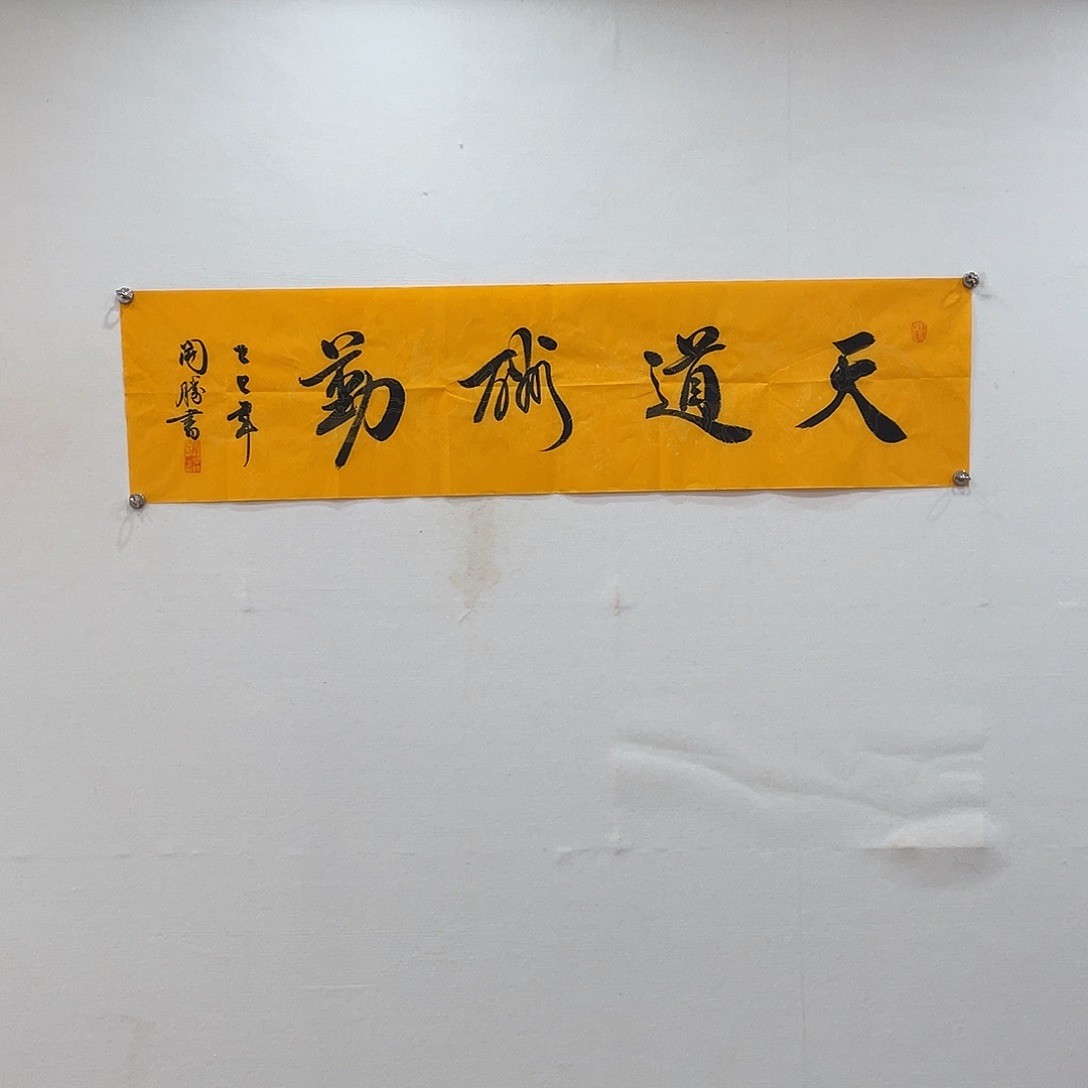 天道酬勤
乙巳年
開勝書